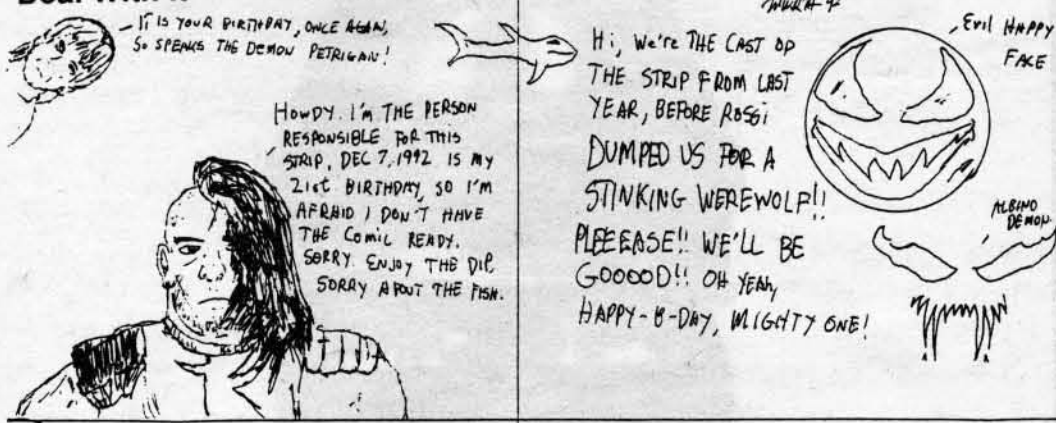 Deal With It
IT IS YOUR BIRTHDAY, ONCE AGAIN,
SO SPEAKS THE DEMON PETRIGAN!
HOWDY. I'M THE PERSON
RESPONSIBLE FOR THIS
STRIP, DEC 7, 1992 IS MY
21st BIRTHDAY, SO I'M
AFRAID I DON'T HAVE
THE COMIC READY.
SORRY. ENJOY THE DIP.
SORRY ABOUT THE FISH.
Hi, We're THE CAST OP
THE STRIP FROM LAST
YEAR, BEFORE ROSSi
DUMPED US FOR A
STINKING WEREWOLF!!
PLEEEASE!! WE'LL BE
GOOOOD!! OH YEAH,
HAPPY-B-DAY, MIGHTY ONE!
Evil HAPPY
FACE
ALBINO
DEMON